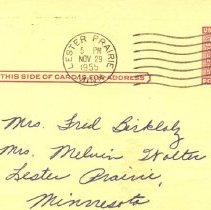 LESTER PRAIRIE
5 PM
NOV 29
1955
MINN.
THIS SIDE OF CARD IS FOR ADDRESS
Mrs. Fred Birkholz
Mrs. Melvin Wolter
Lester Prairie,
Minnesota